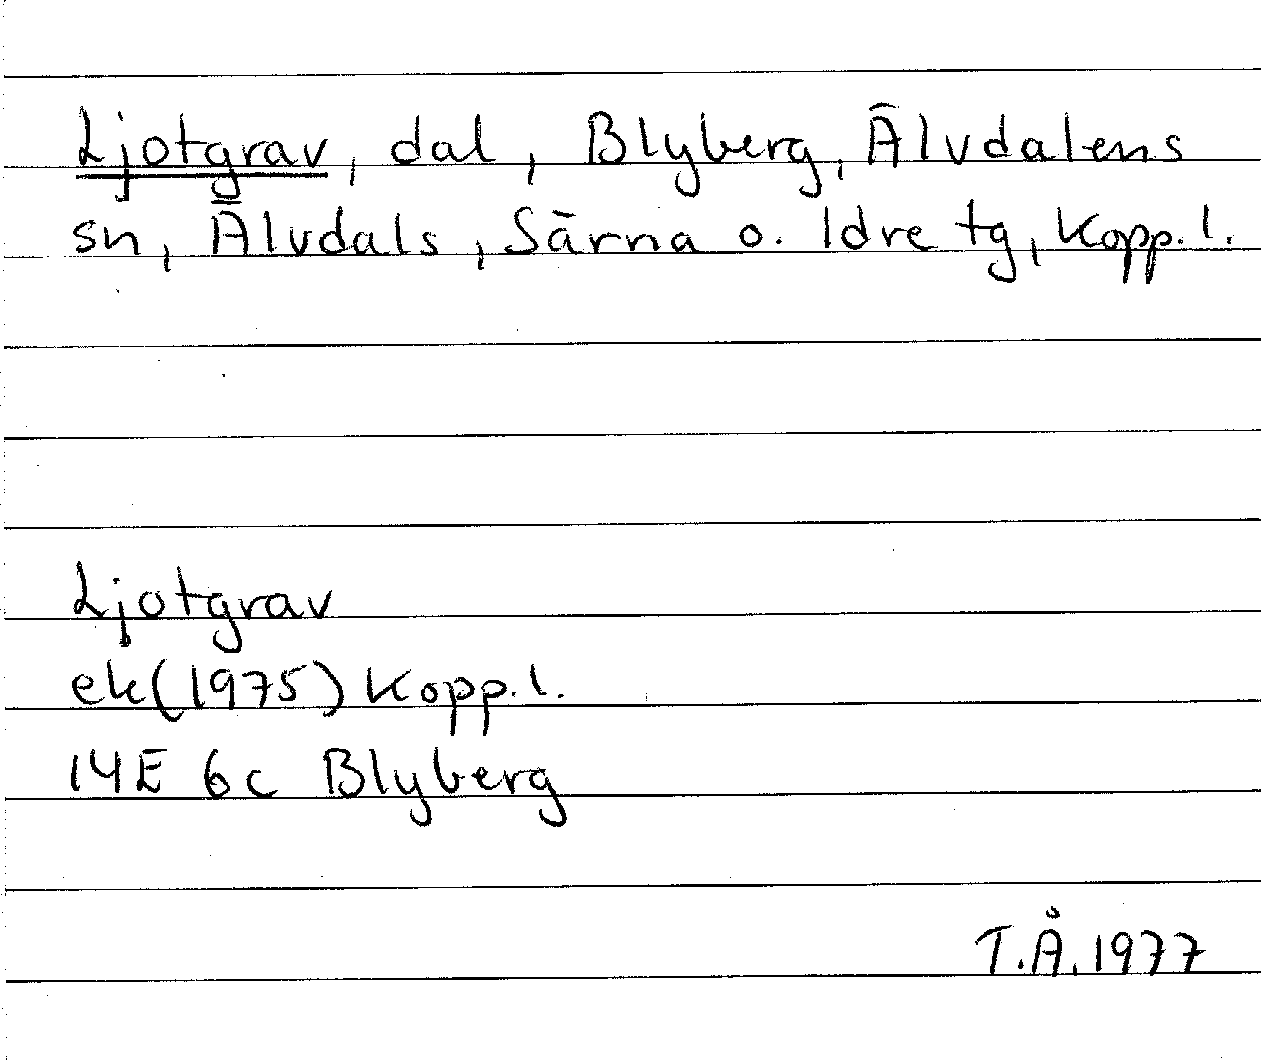 Ljotgrav, dal, Blyberg, Älvdalens
sn, Älvdals, Särna o. Idre tg, Kopp. l.
Ljotgrav
ek (1975) Kopp. l.
14E 6c Blyberg
T.Å. 1977